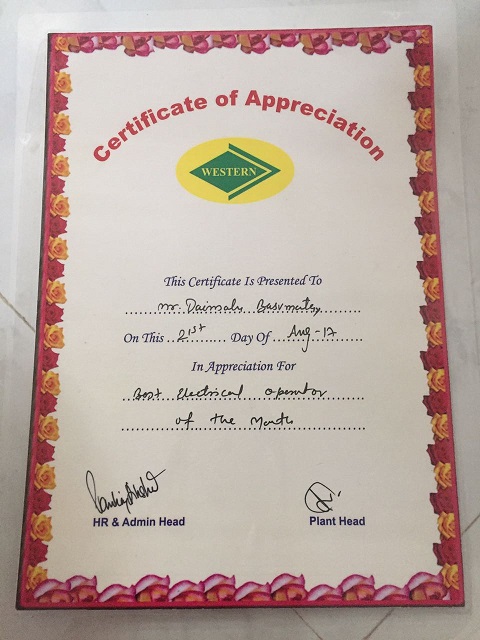 Certificate of Appreciation
WESTERN
This Certificate Is Presented To
Mr. Daimalu Basumatary
On This 21st Day Of Aug-17
In Appreciation For
Best Electrical Operator
of the Month
HR & Admin Head
Plant Head